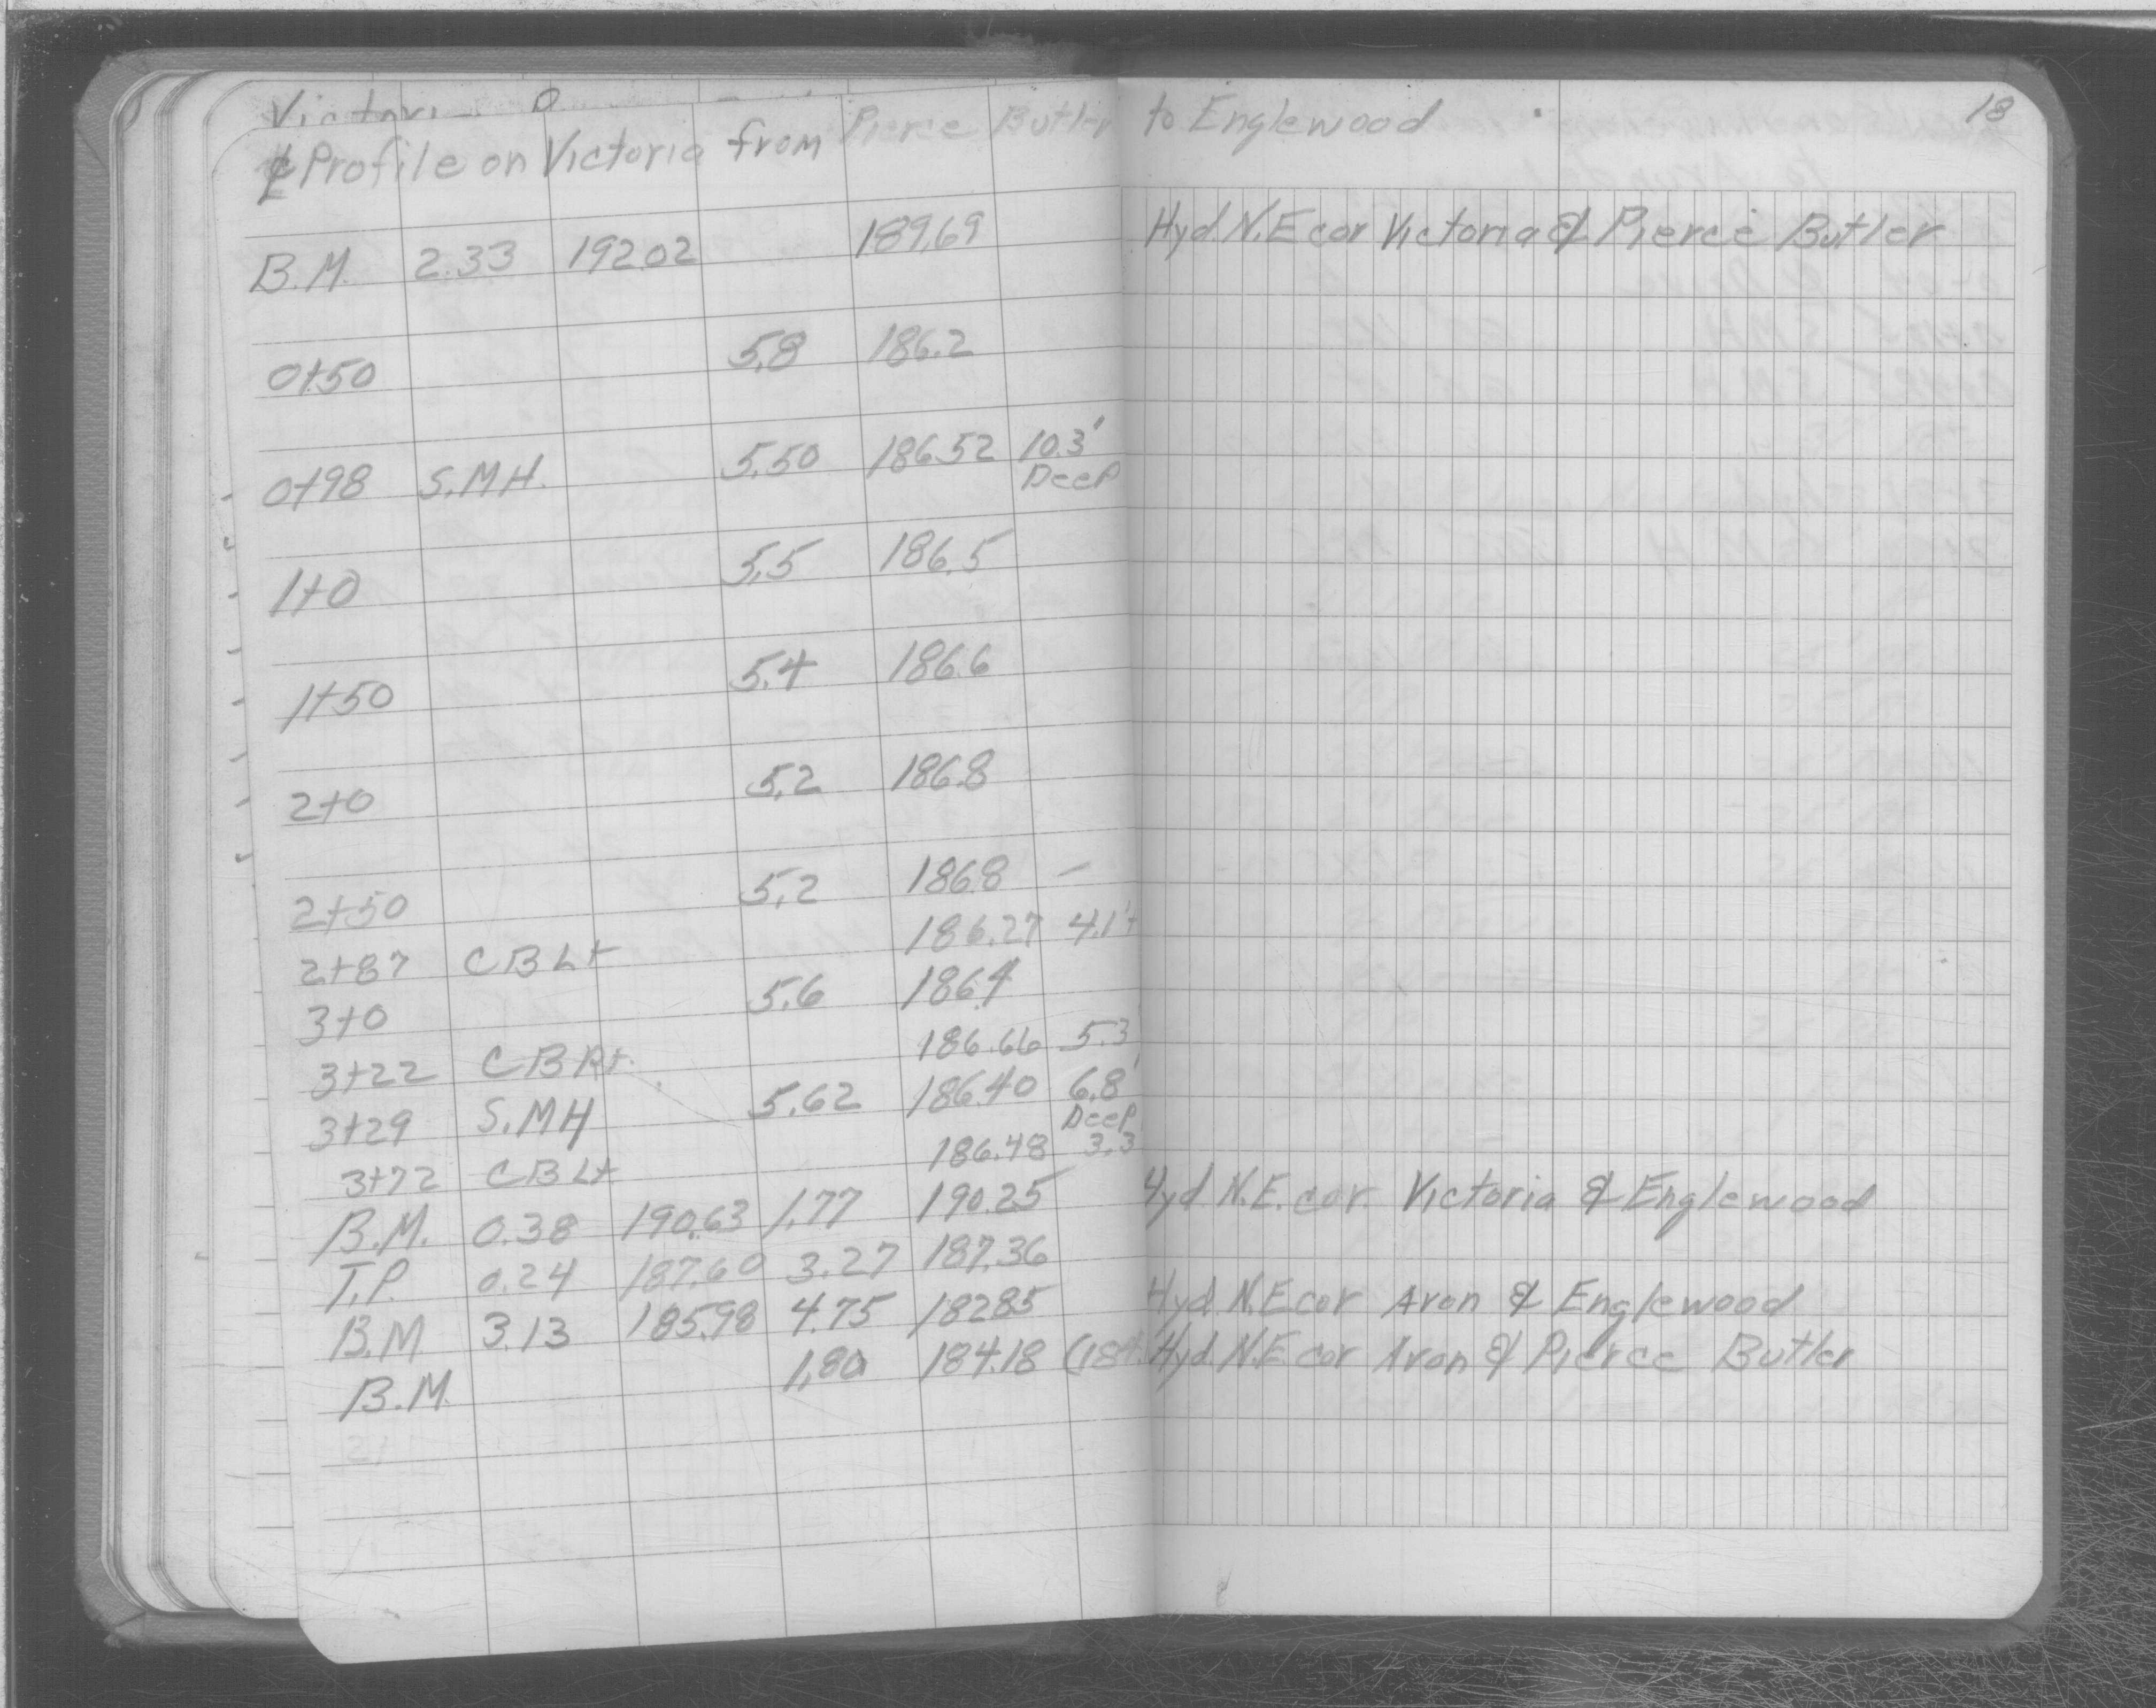 18
℄ Profile on Victoria from Pierce Butler to Englewood
B.M. 2.33 192.02 189.69 Hyd. N.E cor Victoria & Pierce Butler
0+50 5.8 186.2
0+98 S.M.H. 5.50 186.52 10.3' Deep
1+0 5.5 186.5
1+50 5.4 186.6
2+0 5.2 186.8
2+50 5.2 186.8 –
2+87 CB Lt 186.27 4.1'
3+0 5.6 186.4
3+22 CB Rt. 186.66 5.3'
3+29 S.MH 5.62 186.40 6.8' Deep
3+72 CB Lt 186.48 3.3
B.M. 0.38 190.63 1.77 190.25 Hyd N.E. cor. Victoria & Englewood
T.P. 0.24 187.60 3.27 187.36
B.M. 3.13 185.98 4.75 182.85 Hyd N.E cor Avon & Englewood
B.M. 1.80 184.18 (184. Hyd. N.E. cor Avon & Pierce Butler